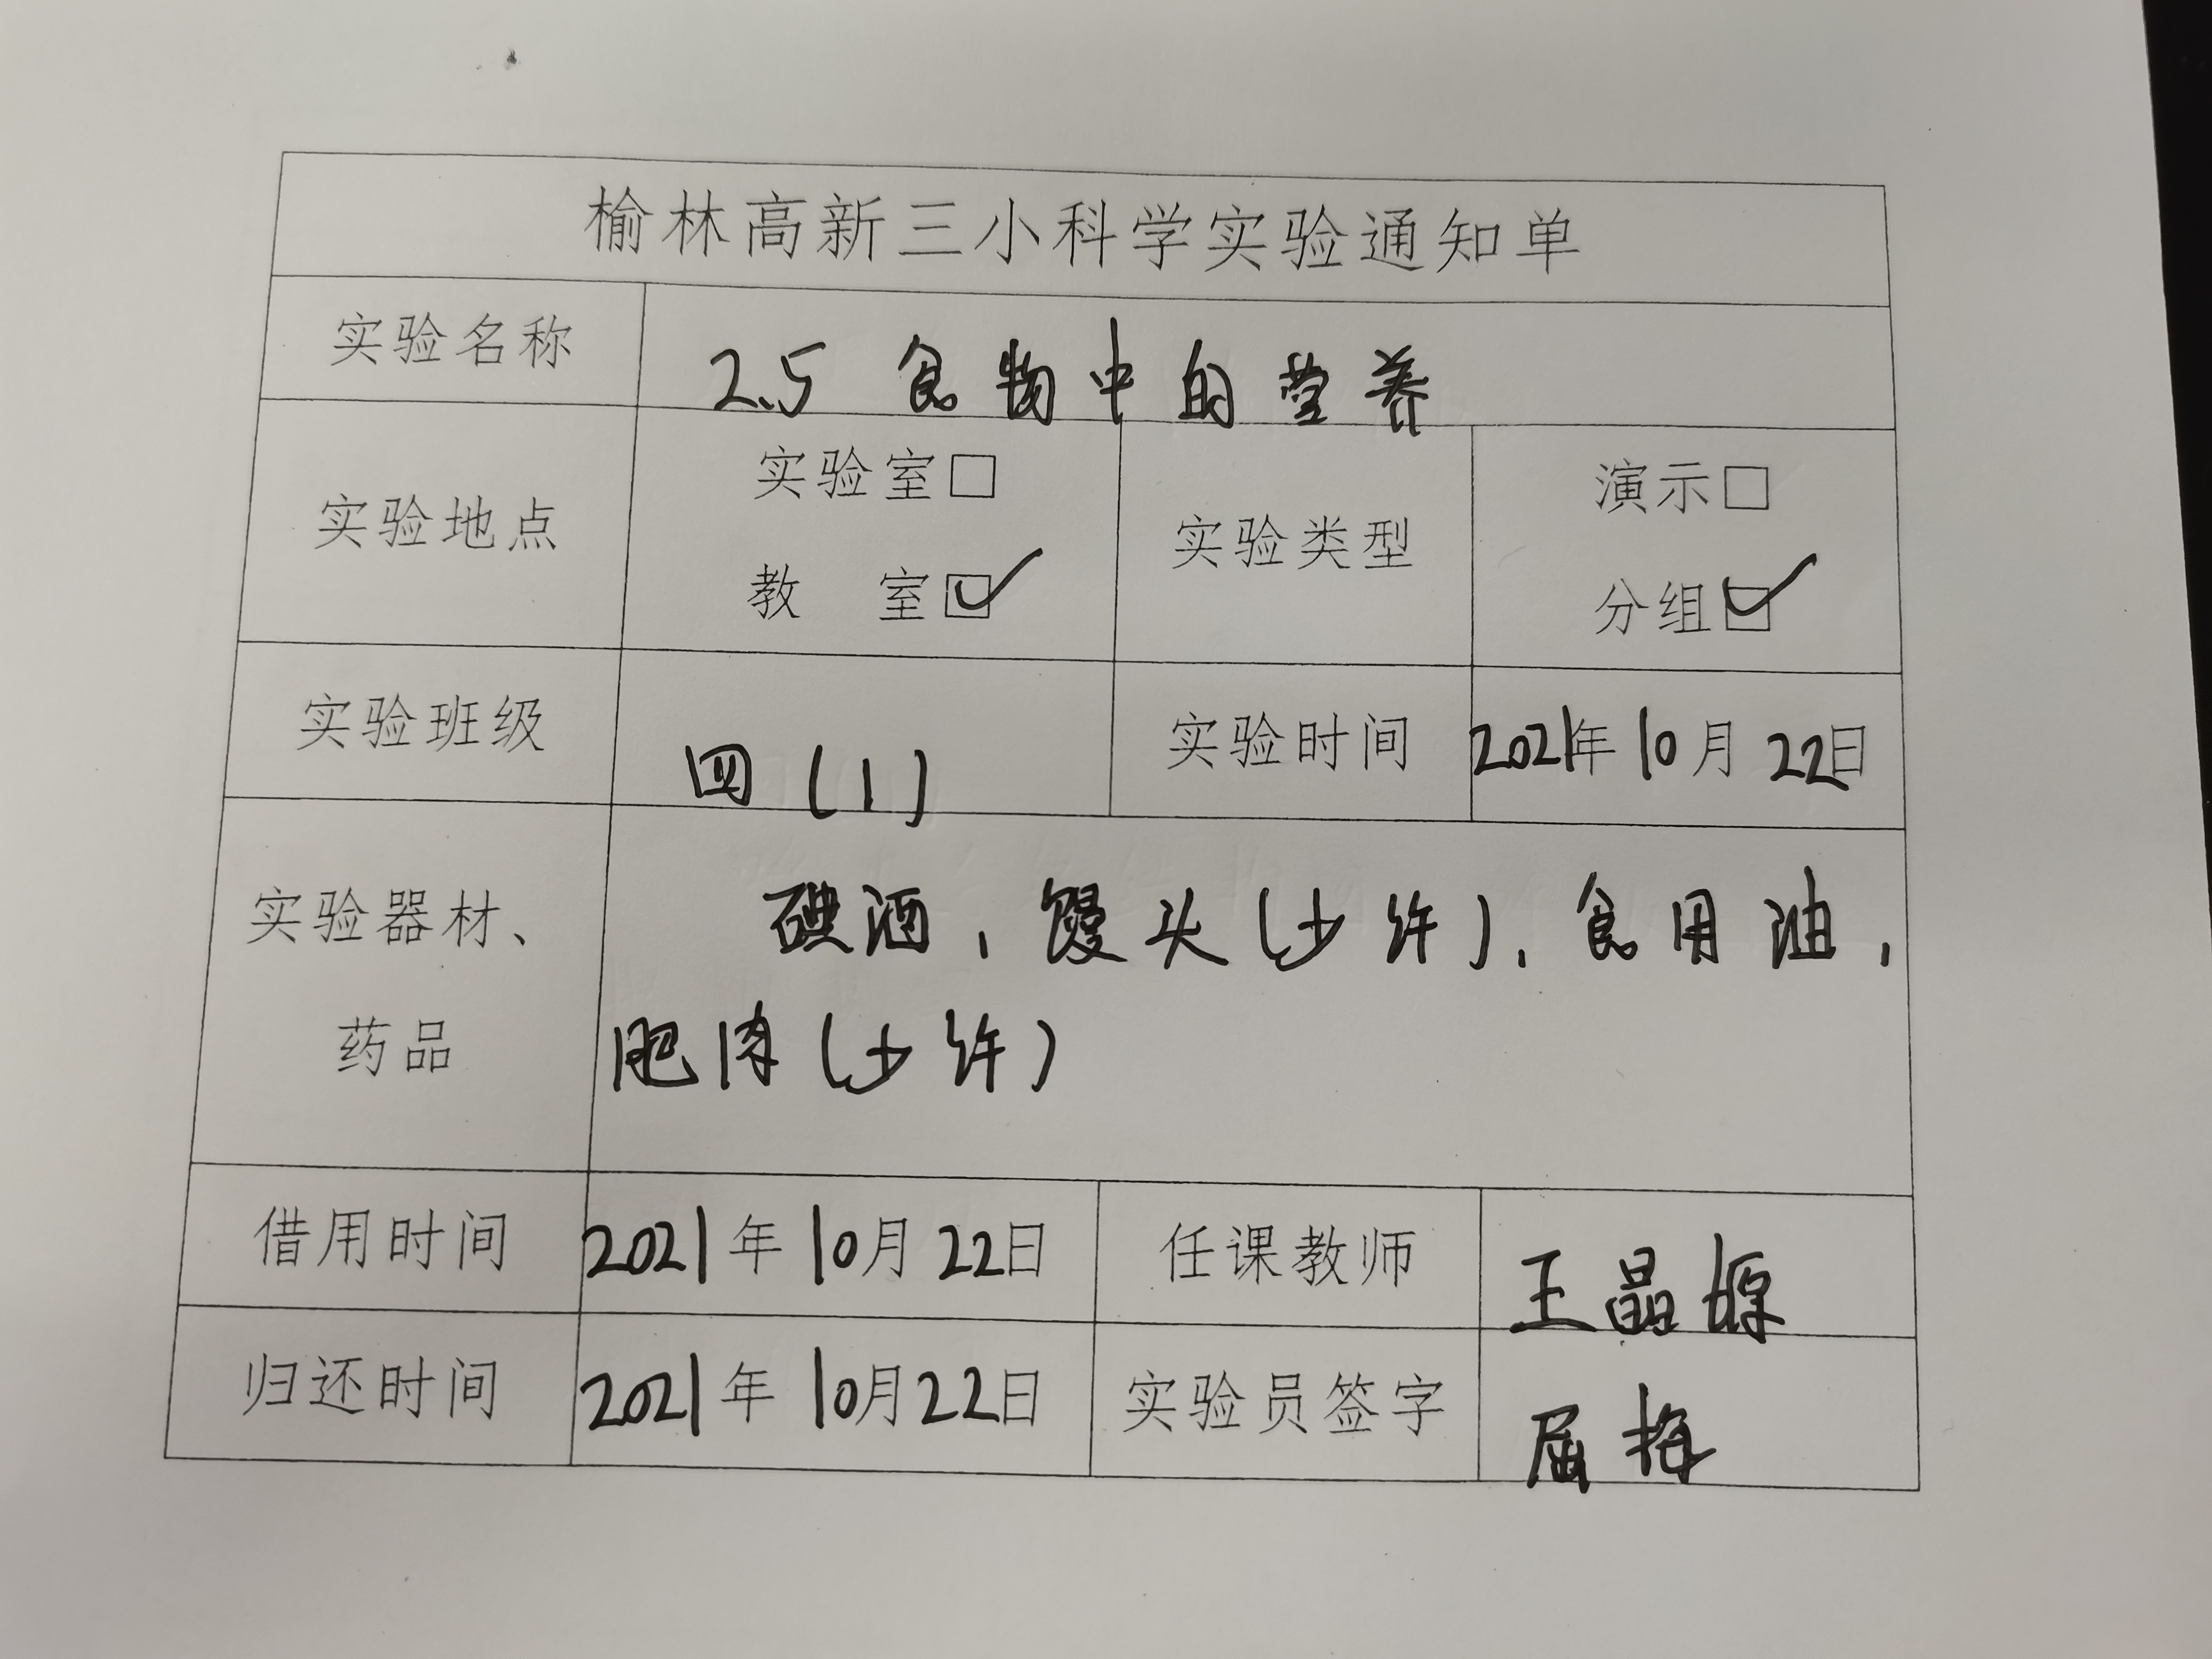 榆林高新三小科学实验通知单
实验名称 2.5 食物中的营养
实验地点 实验室□ 教 室☑ 实验类型 演示□ 分组☑
实验班级 四(1) 实验时间 2021年10月22日
实验器材、药品 碘酒,馒头(少许),食用油,
肥肉(少许)
借用时间 2021年10月22日 任课教师 王晶
归还时间 2021年10月22日 实验员签字 屈梅